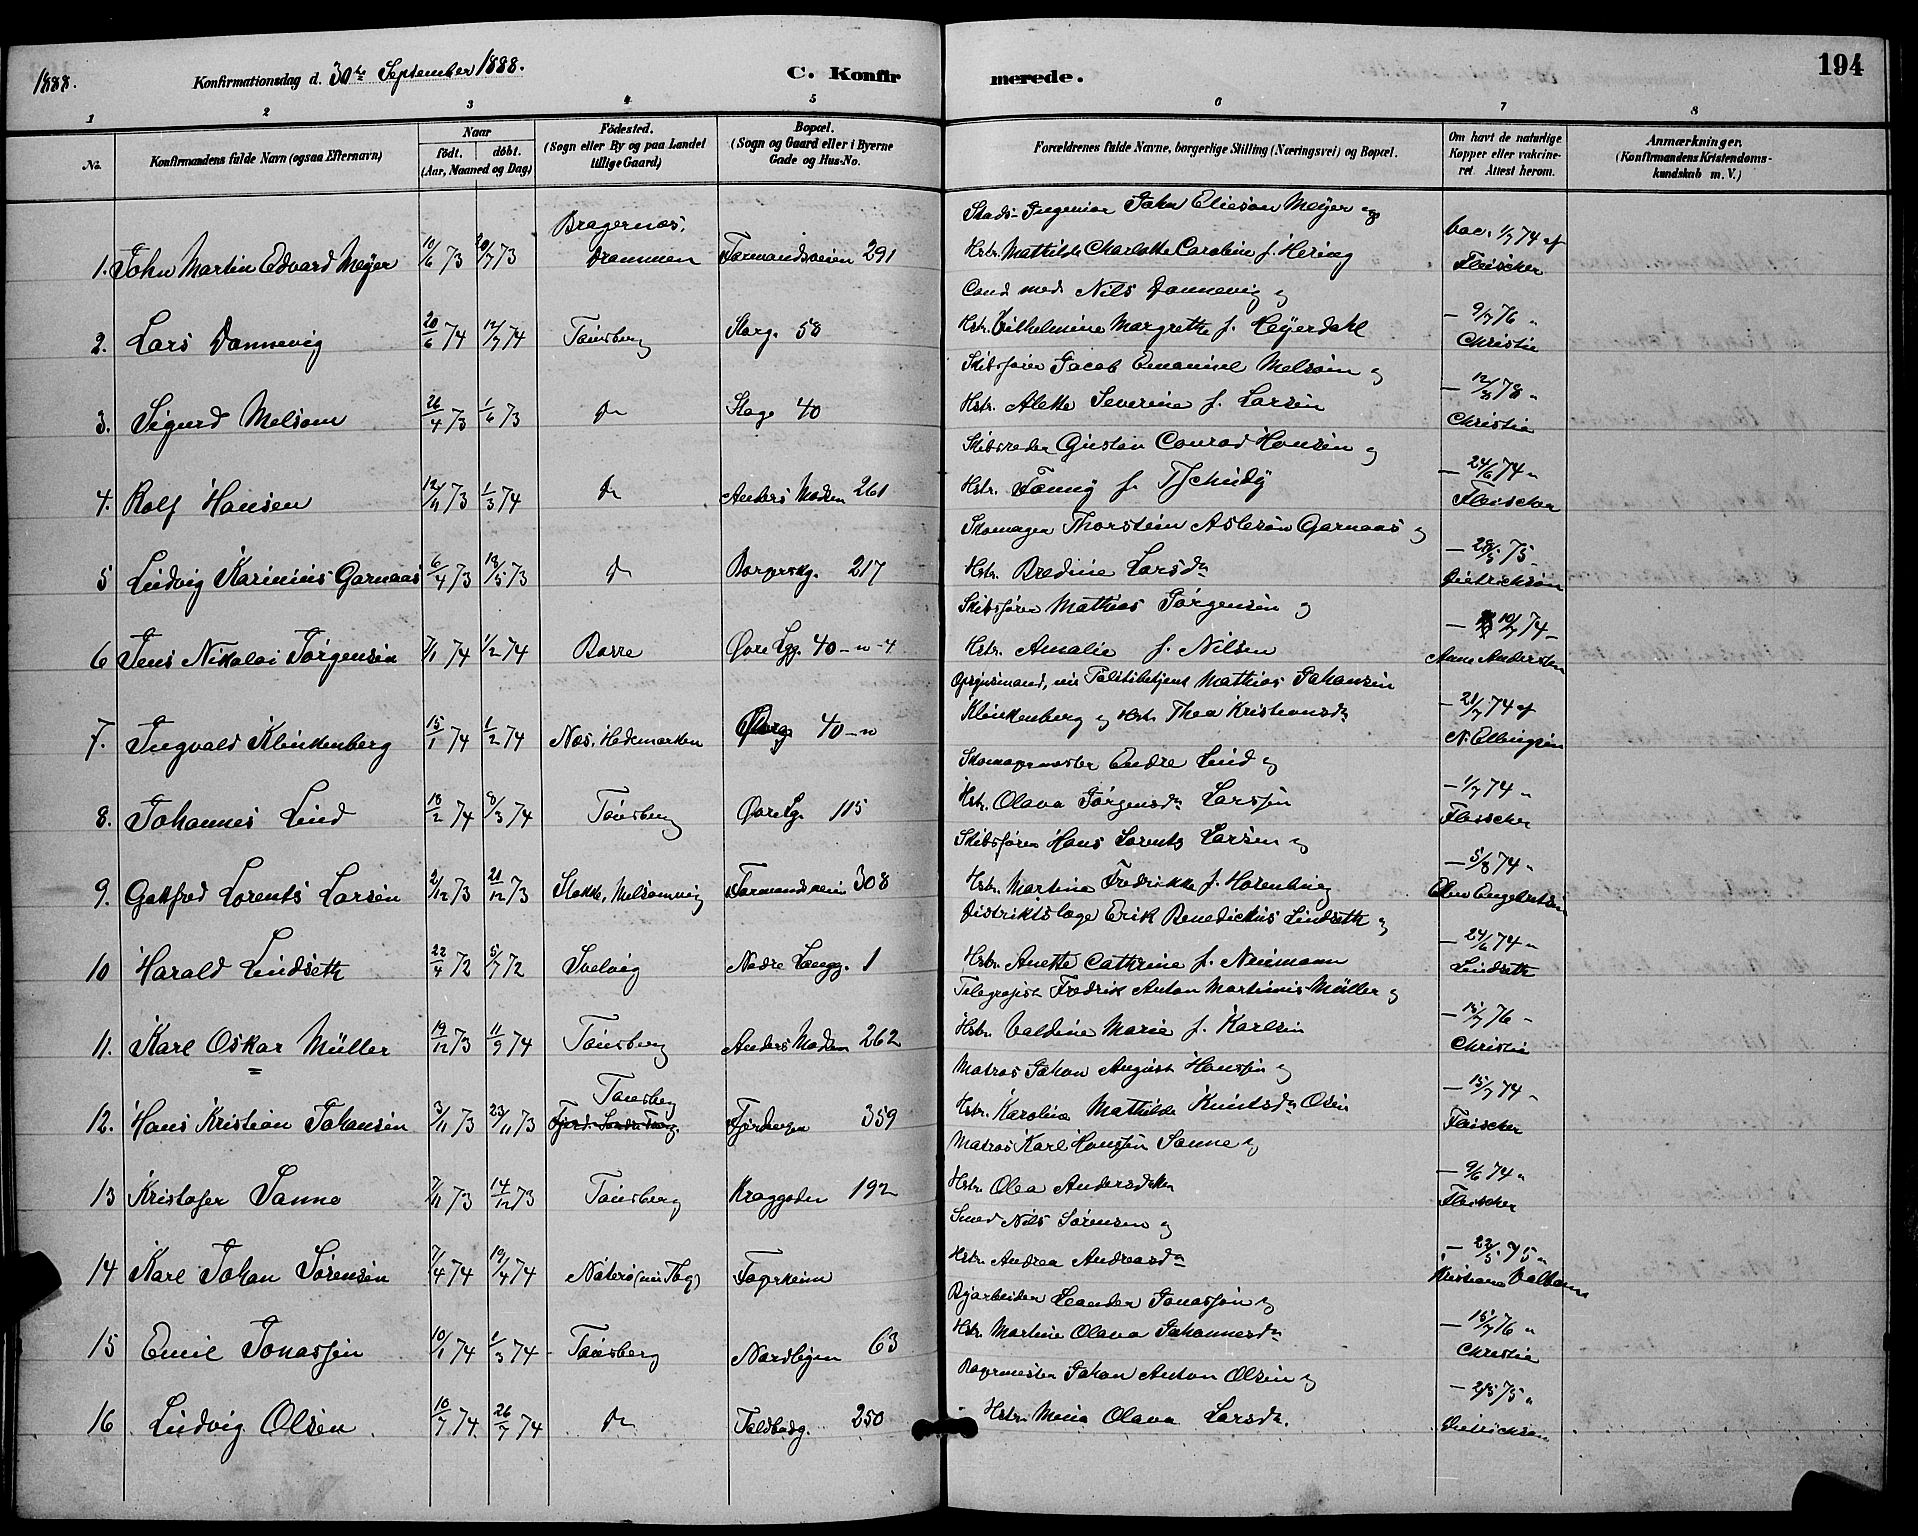 1888.
Konfirmationsdag d. 30te September 1888.
C. Konfirmerede.
194
1 2 3 4 5 6 7 8
No.
Konfirmandens fulde Navn (ogsaa Efternavn)
Naar
født. døbt.
(Aar, Maaned og Dag)
Fødested.
(Sogn eller By og paa Landet
tillige Gaard)
Bopæl.
(Sogn og Gaard eller i Byerne
Gade og Hus-No.
Forældrenes fulde Navne, borgerlige Stilling (Næringsvei) og Bopæl.
Om havt de naturlige
Kopper eller vakcine-
ret Attest herom.
Anmærkninger.
(Konfirmandens Kristendoms-
kundskab m. V.)
Bragernæs, Stads-Ingeniør John Elieson Meyer og vac. 1/7 74 af
1. John Martin Edvard Meyer 10/6 73 20/7 73 Drammen Farmandsveien 291 Hstr. Mathilde Charlotte Caroline f. Hering Fleischer
Cand med. Nils Dannevig og
2. Lars Dannevig 20/6 74 12/7 74 Tønsberg Storg. 58 Hstr. Vilhelmine Margrethe f. Heyerdahl - 9/7 76 "
Christie
Skibsfører Jacob Emanuel Melsom og
3. Sigurd Melsom 26/4 73 1/6 73 do Storg 40 Hstr. Alette Severine f. Larsen - 12/8 78 "
Christie
Skibsreder Gustav Conrad Hansen og
4. Rolf Hansen 12/11 73 1/3 74 do Anders Madsen 261 Hstr. Fanny f. Tschudy - 24/6 74 "
Fleischer
Skomager Thorstein Aslesøn Garnaas og
5 Ludvig Karinius Garnaas 6/4 73 18/5 73 do Borgerskg. 217 Hstr. Bredine Larsdr - 28/5 75 -
Dietrichson
Skibsfører Mathias Jørgensen og
6 Jens Nikolai Jørgensen 7/1 74 1/2 74 Borre Øvre Lgg. 40-n-4 Hstr. Amalie f. Nilsen - 10/7 74 -
Anne Andersten
Opsynsmand, nu Politibetjent Mathias Johansen
7. Ingvald Klinkenberg 15/1 74 1/2 74 Næs, Hedemarken 40-n Klinkenberg og Hstr. Thea Kristiansdr - 21/7 74 af
N. Ellingsen
Skomagermester Andre Lind og
8. Johannes Lind 18/2 74 8/3 74 Tønsberg Øvre Lg. 115 Hstr. Olava Jørgensdr Larssen - 1/7 74 "
Fleischer
Skibsfører Hans Lorents Larsen og
9. Gottfred Lorents Larsen 2/12 73 21/12 73 Stokke, Melsomvig Farmandsveien 308 Hstr. Martine Fredrikke f. - 5/8 74 "
Engebretsen
Distriktslæge Erik Benedictus Lindseth og
10 Harald Lindseth 22/4 72 5/7 72 Svelvig Nedre Langg. 1 Hstr. Anette Cathrine f. Neumann - 24/6 74 "
Lindseth
Telegrafist Fredrik Anton Martinius Müller og
11. Karl Oskar Müller 19/12 73 11/9 74 Tønsberg Anders Madsen 262 Hstr. Valdine Marie f. Karlsen - 15/7 76 -
Christie
Matros Johan August Hanssen og
Tønsberg
12. Hans Kristian Johansen 3/11 73 23/11 73 Fjordgaden 359 Hstr. Karoline Mathilde Knutsdr Olsen - 15/7 74 "
Fleischer
Matros Karl Hanssen Sanne og
13 Kristofer Sanne 7/11 73 14/12 73 Tønsberg Kraggaden 192 Hstr. Olea Andersdtr - 9/6 74 "
Fleischer
Smed Nils Sørensen og
14 Karl Johan Sørensen 7/4 74 19/4 74 Nøterø (nu Tbg) Fagerheim Hstr. Andrea Andreasdr - 22/5 75 "
Kristiane
Byarbeider Leander Jonassen og
15 Emil Jonassen 10/1 74 1/3 74 Tønsberg Nordbyen 63 Hstr. Martine Olava Johannesdr - 15/7 76 "
Christie
Bagermester Johan Anton Olsen og
16 Ludvig Olsen 10/7 74 26/7 74 do Toldbodg. 250 Hstr. Mina Olava Larsdr. - 2/5 75 "
Dietrichson